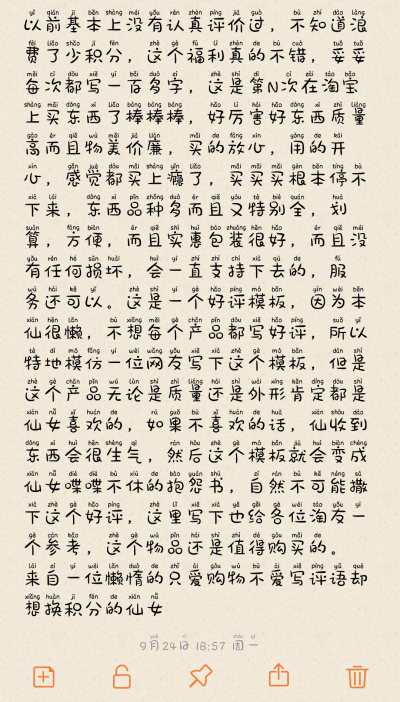 以前基本上没有认真评价过，不知道浪
费了少积分，这个福利真的不错，妥妥
每次都写一百多字，这是第N次在淘宝
上买东西了棒棒棒，好厉害好东西质量
高而且物美价廉，买的放心，用的开
心，感觉都买上瘾了，买买买根本停不
下来，东西品种多而且又特别全，划
算，方便，而且实惠包装很好，而且没
有任何损坏，会一直支持下去的，服
务还可以。这是一个好评模板，因为本
仙很懒，不想每个产品都写好评，所以
特地模仿一位网友写下这个模板，但是
这个产品无论是质量还是外形肯定都是
仙女喜欢的，如果不喜欢的话，仙收到
东西会很生气，然后这个模板就会变成
仙女喋喋不休的抱怨书，自然不可能撒
下这个好评，这里写下也给各位淘友一
个参考，这个物品还是值得购买的。
来自一位懒惰的只爱购物不爱写评语却
想换积分的仙女
9月24日 18:57 周一